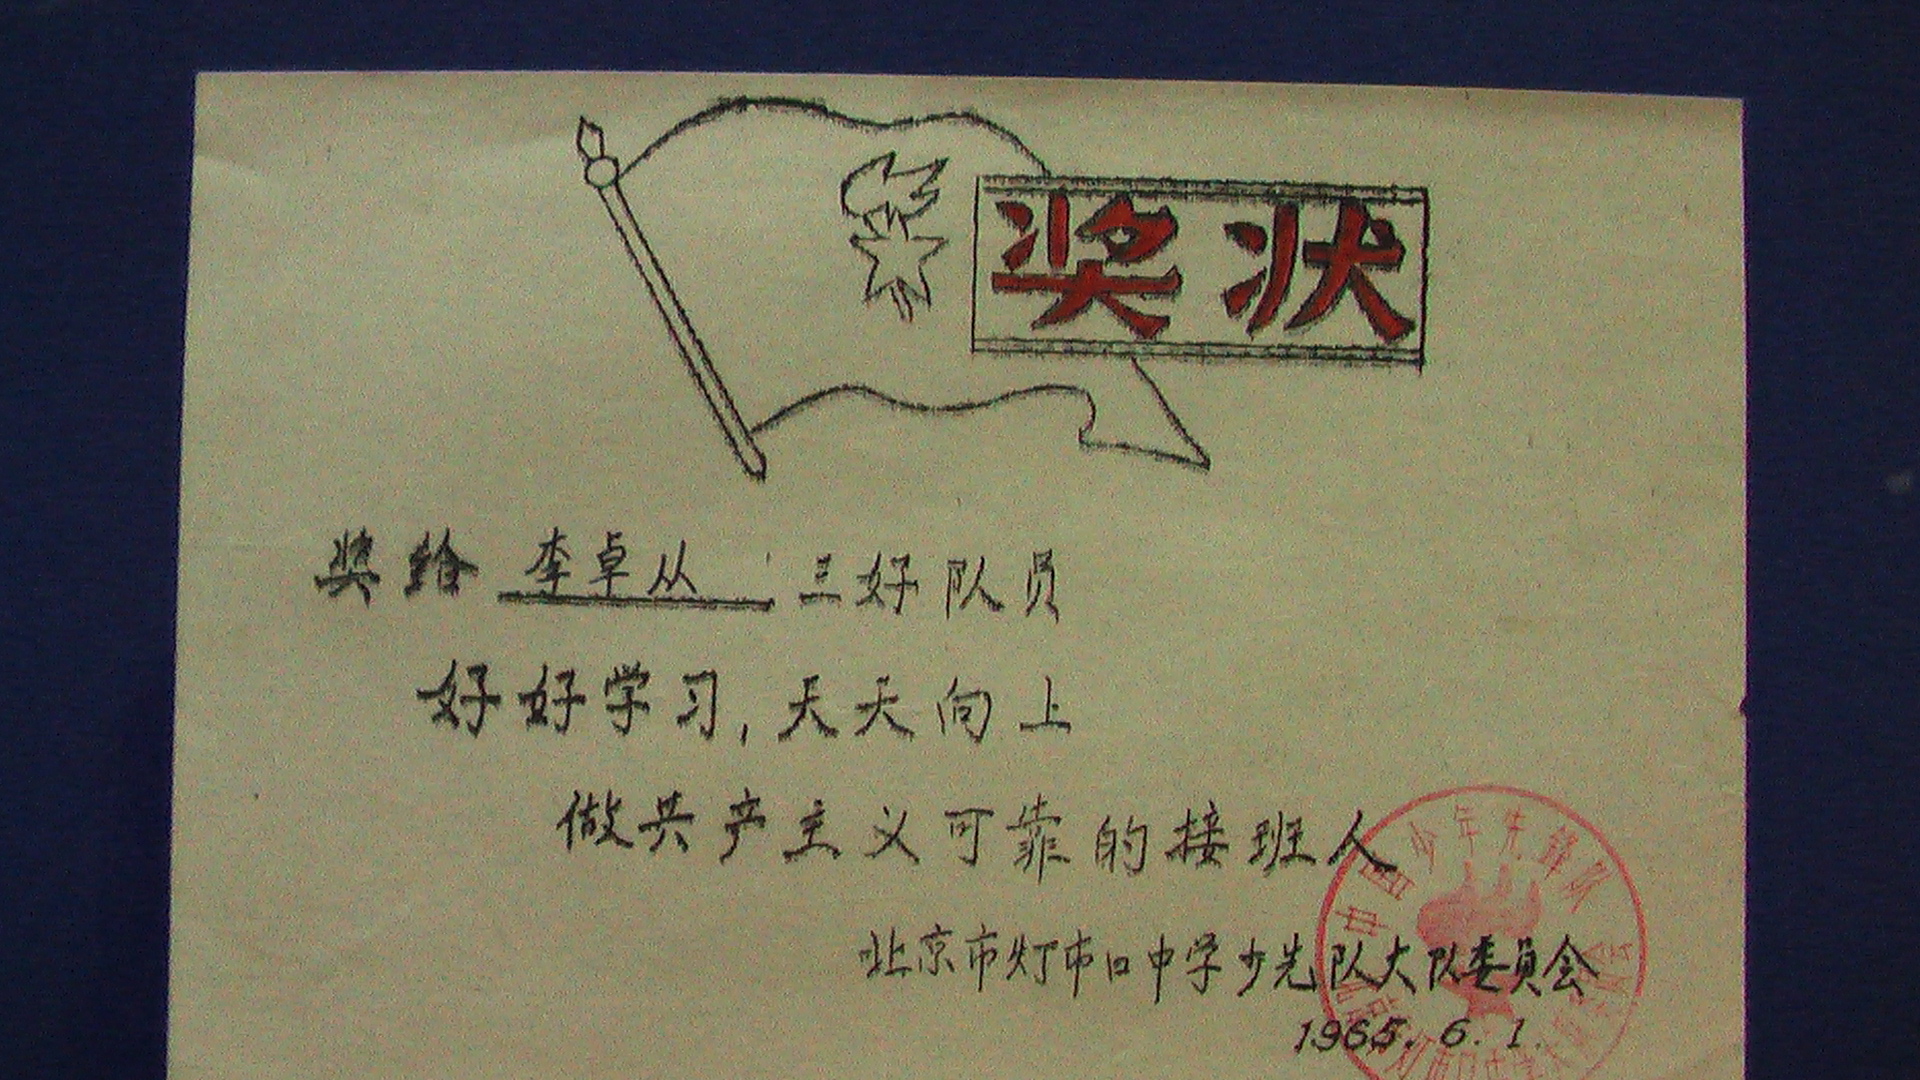 奖状
奖给 李卓从 三好队员
好好学习,天天向上
做共产主义可靠的接班人
北京市灯市口中学少先队大队委员会
1965.6.1.
中国少年先锋队